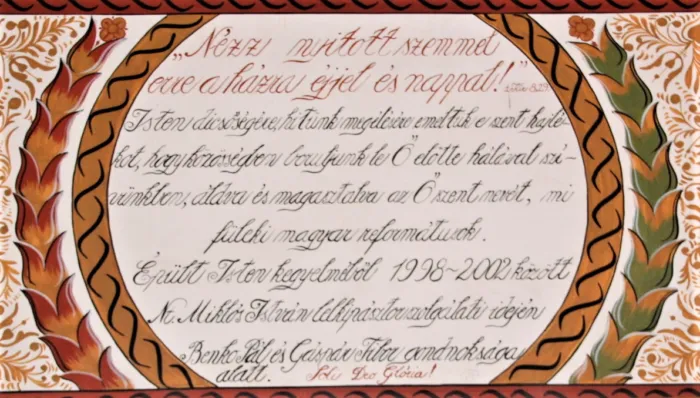 „Nézz nyitott szemmel
erre a házra éjjel és nappal!”
Isten dicsőségére, hitünk megélésére emeltük e szent hajlé-
kot, hogy közösségben boruljunk le Ő előtte hálával szí-
vünkben, áldva és magasztalva az Ő szent nevét, mi
füleki magyar reformátusok.
Épült Isten kegyelméből 1998~2002 között
Nt. Miklós István lelkipásztor szolgálati idején
Benko Pál és Gáspár Tibor gondnoksága
alatt. Soli Deo Glória!